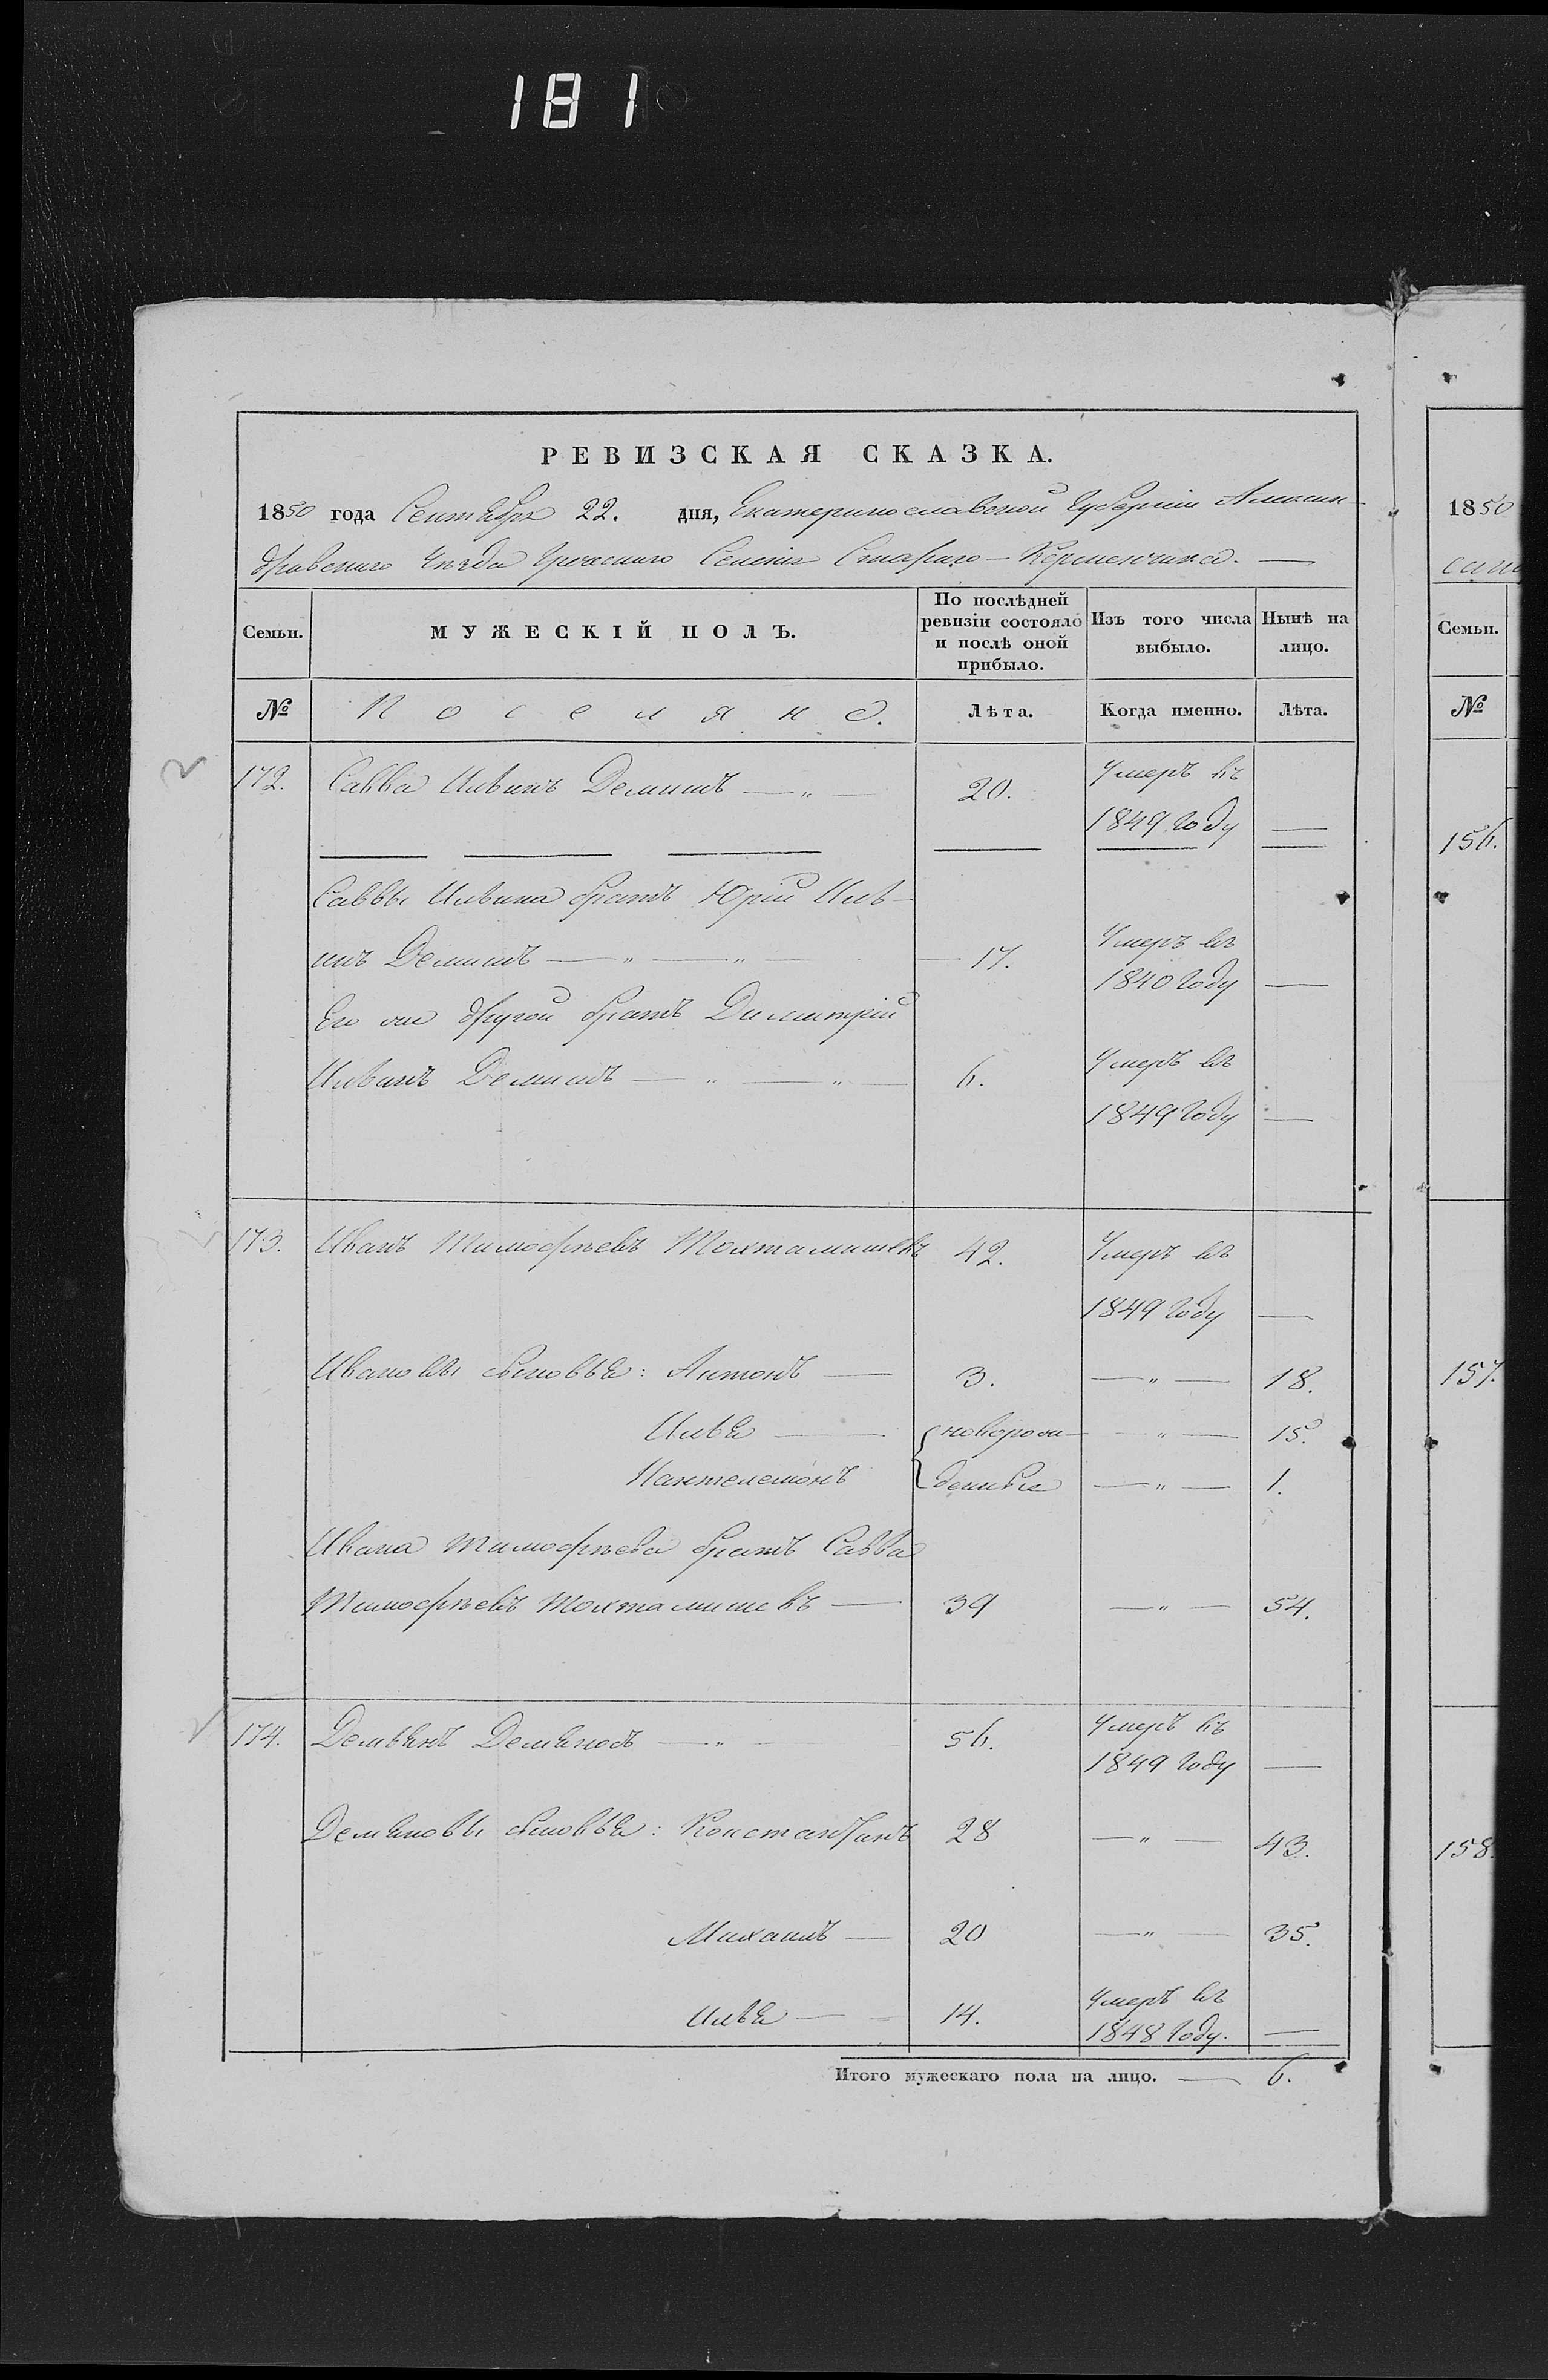 181
РЕВИЗСКАЯ СКАЗКА.
1850 года Сентября 22. дня, Екатеринославской Губерніи Алексан-
дровскаго Уѣзда Греческаго Селенія Стараго-Керменчика. —
Семьи. МУЖЕСКІЙ ПОЛЪ. По послѣдней ревизіи состояло и послѣ оной прибыло. Изъ того числа выбыло. Ныnѣ на лицо.
№ Поселянъ. Лѣта. Когда именно. Лѣта.
172. Савва Ильинъ — " — 20. Умеръ въ
1849 году —
Саввы Ильина братъ Юрій Иль-
инъ — " — " — 17. Умеръ въ
1840 году —
Его же другой братъ Димитрій
Ильинъ — " — " — 6. Умеръ въ
1849 году —
173. Иванъ Тимофѣевъ Тохтамишевъ 42. Умеръ въ
1849 году —
Ивановы сыновья: Антонъ — 3. — " — 18.
Илья — новорож- — " — 15.
Пантелемонъ денные — " — 1.
Ивана Тимофѣева братъ Савва
Тимофѣевъ Тохтамишевъ — 39 — " — 54.
174. Демьянъ Демьяновъ — " — 56. Умеръ въ
1849 году —
Демьяновы сыновья: Константинъ 28 — " — 43.
Михаилъ — 20 — " — 35.
Илья — 14. Умеръ въ
1848 году. —
Итого мужескаго пола на лицо. — 6.
1850
Семьи.
№
156.
157.
158.